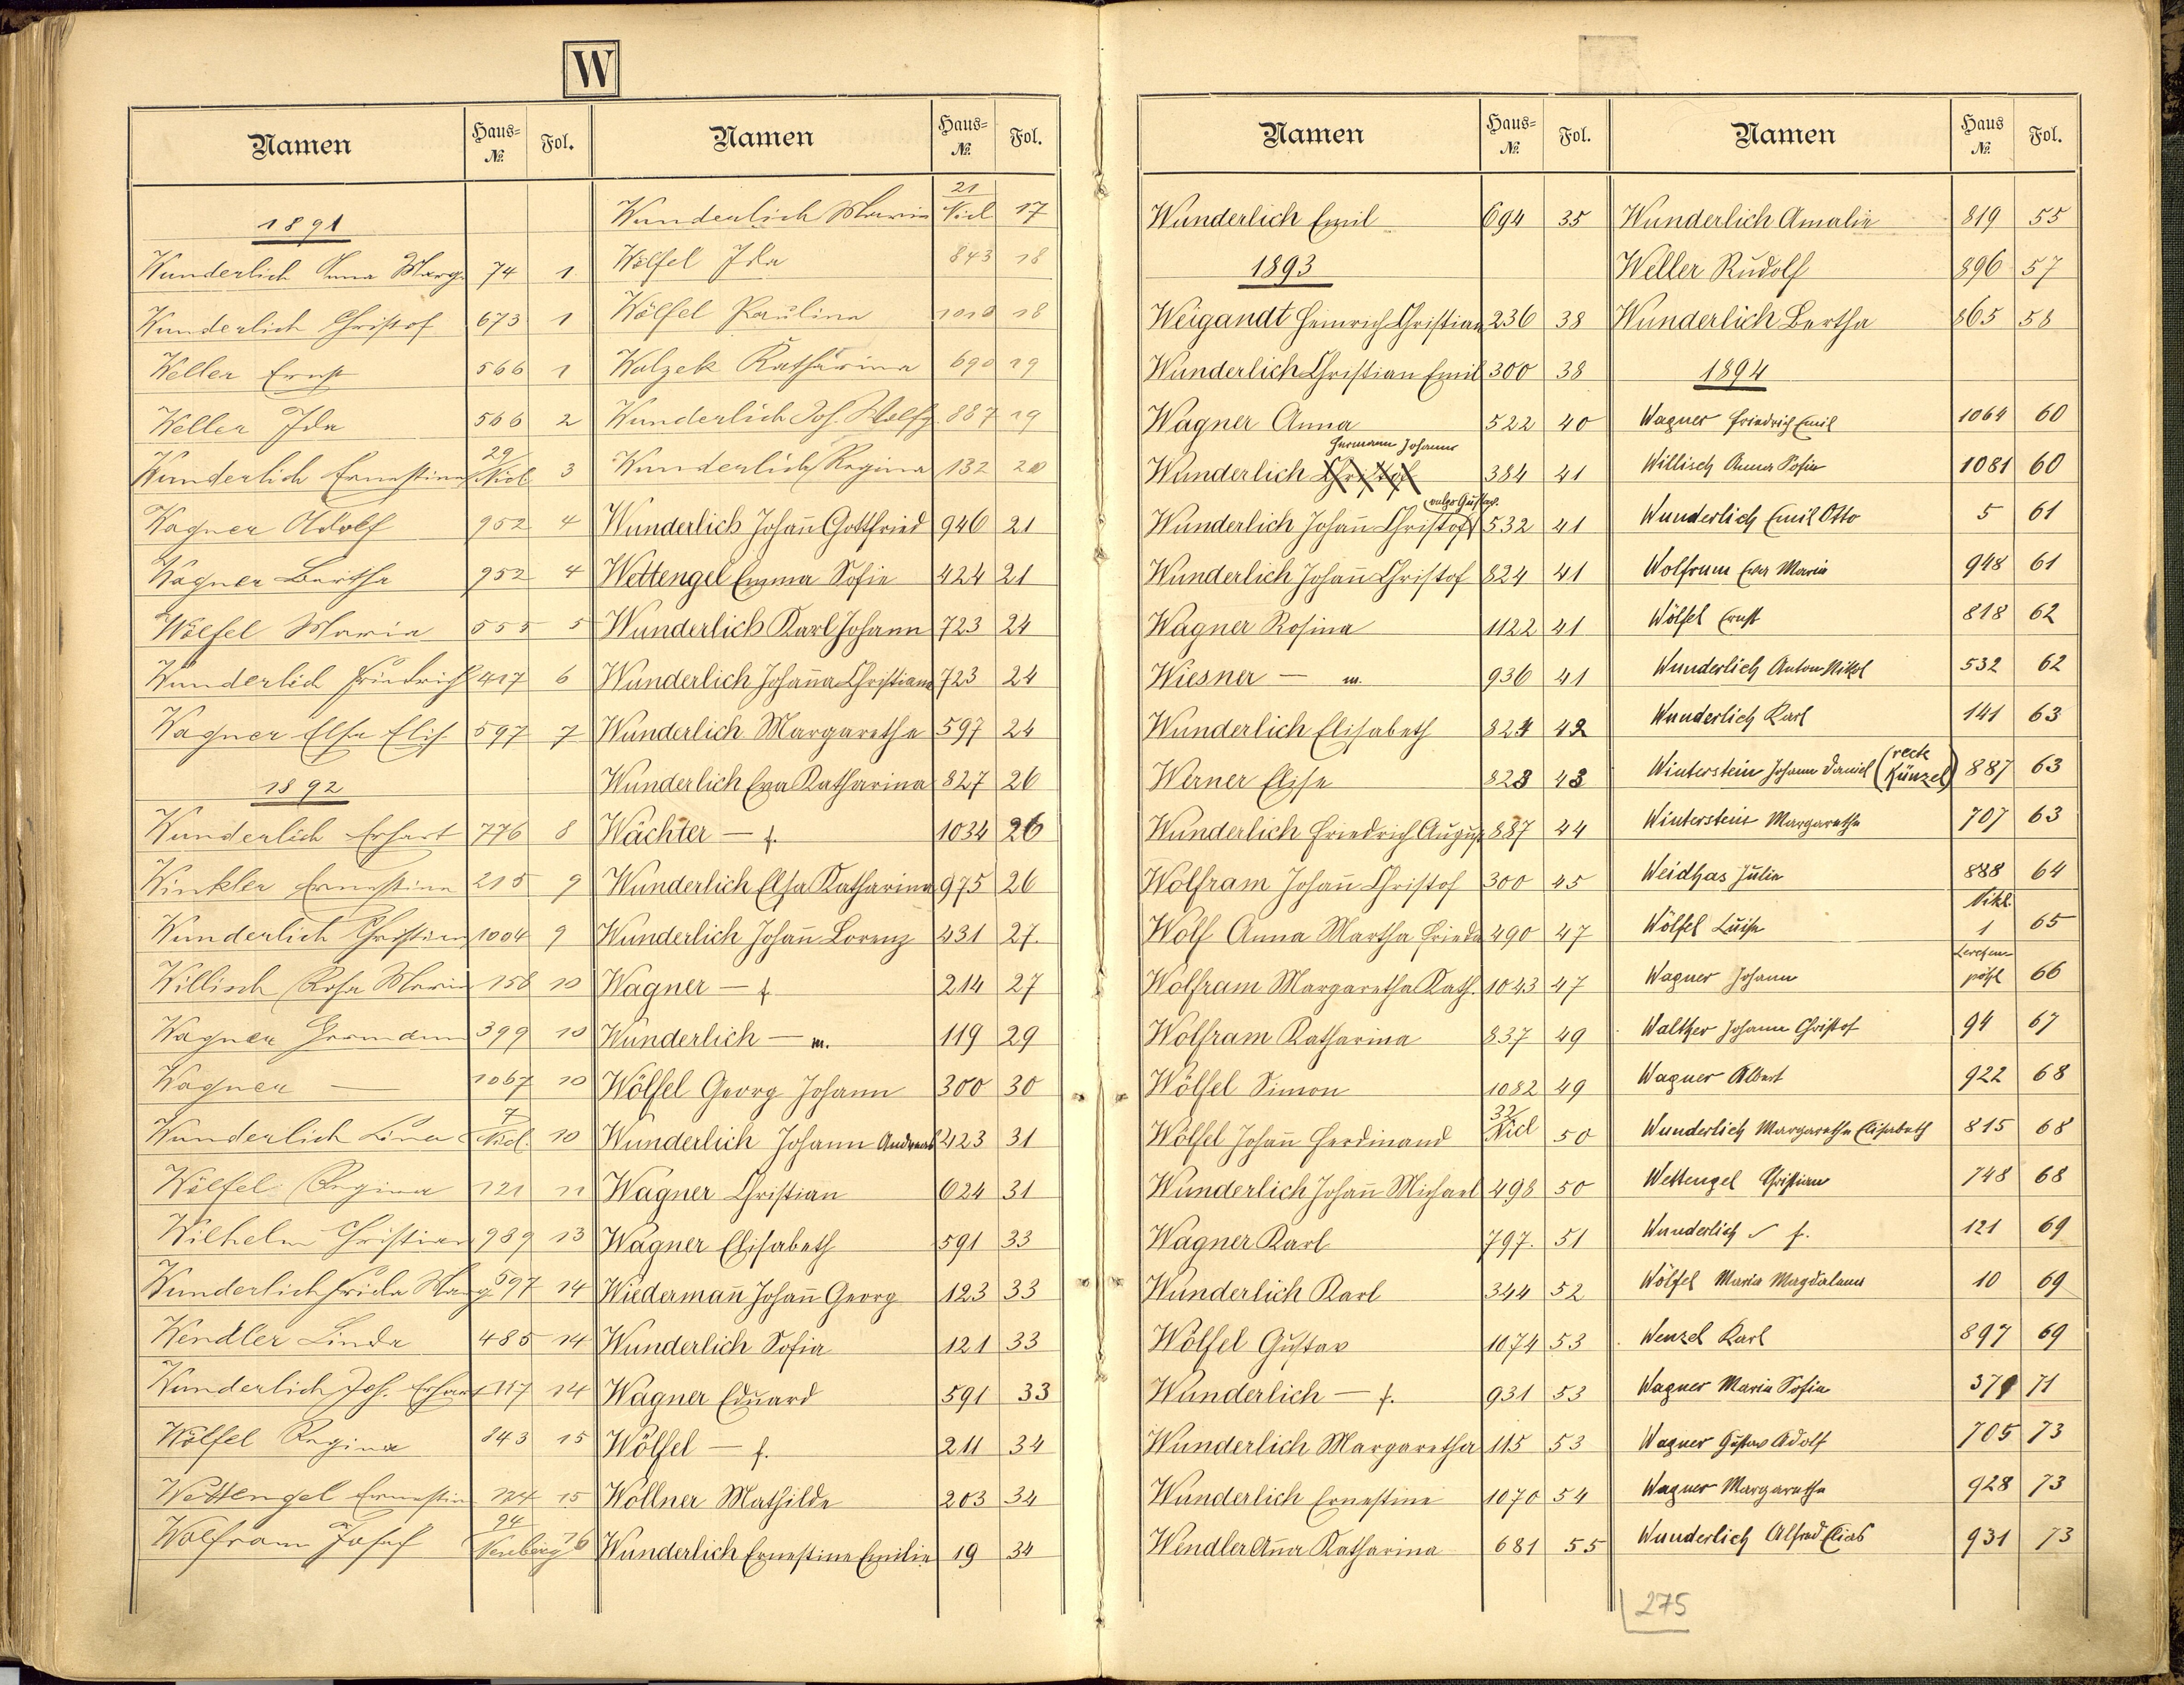 W
Namen Haus-№ Fol.
1891
Wunderlich Anna Marg. 74 1
Wunderlich Christof 673 1
Weller Ernst 566 1
Weller Ida 566 2
Wunderlich Ernestine 29/Nicl 3
Wagner Adolf 952 4
Wagner Bertha 952 4
Wölfel Maria 555 5
Wunderlich Friedrich 417 6
Wagner Elsa Elis. 597 7
1892
Wunderlich Erhart 776 8
Winkler Ernestine 215 9
Wunderlich Christian 1004 9
Willisch Rosa Maria 158 10
Wagner Hermann 399 10
Wagner — 1067 10
Wunderlich Lina 7/Nicl. 10
Wölfel Regina 121 11
Wilhelm Christian 989 13
Wunderlich Frida Marg 597 14
Wendler Linda 485 14
Wunderlich Joh. Erhart 117 14
Wölfel Regina 843 15
Wettengel Ernestine 124 15
Wolfram Josef 94 16
Namen Haus-№ Fol.
Wunderlich Maria 21/Nicl 17
Wölfel Ida 843 18
Wölfel Paulina 1010 18
Walzek Katharina 690 19
Wunderlich Joh. Wolfg. 887 19
Wunderlich Regina 132 20
Wunderlich Johañ Gottfried 946 21
Wettengel Emma Sofie 424 21
Wunderlich Karl Johann 723 24
Wunderlich Johaña Christiana 723 24
Wunderlich Margaretha 597 24
Wunderlich Eva Katharina 827 26
Wächter — f. 1034 26
Wunderlich Elsa Katharina 975 26
Wunderlich Johañ Lorenz 431 27.
Wagner — f. 214 27
Wunderlich — m. 119 29
Wölfel Georg Johann 300 30
Wunderlich Johann Andreas 423 31
Wagner Christian 624 31
Wagner Elisabeth 591 33
Wiedermañ Johañ Georg 123 33
Wunderlich Sofia 121 33
Wagner Eduard 591 33
Wölfel — f. 211 34
Wöllner Mathilde 203 34
Wunderlich Ernestine Emilie 19 34
Namen Haus-№ Fol.
Wunderlich Emil 694 35
1893
Weigandt Heinrich Christian 236 38
Wunderlich Christian Emil 300 38
Wagner Anna 522 40
Hermann Johann
Wunderlich Christof 384 41
vulgo Gustav.
Wunderlich Johañ Christof 532 41
Wunderlich Johañ Christof 824 41
Wagner Rosina 1122 41
Wiesner — m. 936 41
Wunderlich Elisabeth 824 42
Werner Elise 823 43
Wunderlich Friedrich August 887 44
Wolfram Johañ Christof 300 45
Wolf Anna Martha Frieda 490 47
Wolfram Margaretha Kath. 1043 47
Wolfram Katharina 837 49
Wölfel Simon 1082 49
Wölfel Johañ Ferdinand 32/Nicl 50
Wunderlich Johañ Michael 498 50
Wagner Karl 797. 51
Wunderlich Karl 344 52
Wölfel Gustav 1074 53
Wunderlich — f. 931 53
Wunderlich Margaretha 115 53
Wunderlich Ernestine 1070 54
Wendler Aña Katharina 681 55
Namen Haus № Fol.
Wunderlich Amalie 819 55
Weller Rudolf 896 57
Wunderlich Bertha 865 58
1894
Wagner Friedrich Emil 1064 60
Willisch Anna Sofie 1081 60
Wunderlich Emil Otto 5 61
Wolfrum Eva Maria 948 61
Wölfel Ernst 818 62
Wunderlich Anton Nikol 532 62
Wunderlich Karl 141 63
Winterstein Johann Daniel (recte Künzel) 887 63
Winterstein Margarethe 707 63
Weidhas Julie 888 64
Wölfel Luise Nikl. 1 65
Wagner Johann Lerchenpöhl 66
Walther Johann Christof 94 67
Wagner Albert 922 68
Wunderlich Margaretha Elisabeth 815 68
Wettengel Christian 748 68
Wunderlich f. 121 69
Wölfel Maria Magdalena 10 69
Wenzel Karl 897 69
Wagner Maria Sofie 379 71
Wagner Gustav Adolf 705 73
Wagner Margarethe 928 73
Wunderlich Alfred Elias 931 73
275